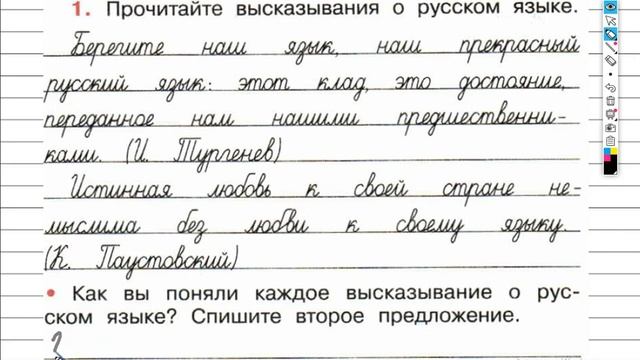 1. Прочитайте высказывания о русском языке.
Берегите наш язык, наш прекрасный
русский язык: этот клад, это достояние,
переданное нам нашими предшественни-
ками. (И. Тургенев)
Истинная любовь к своей стране не-
мыслима без любви к своему языку.
(К. Паустовский)
• Как вы поняли каждое высказывание о рус-
ском языке? Спишите второе предложение.